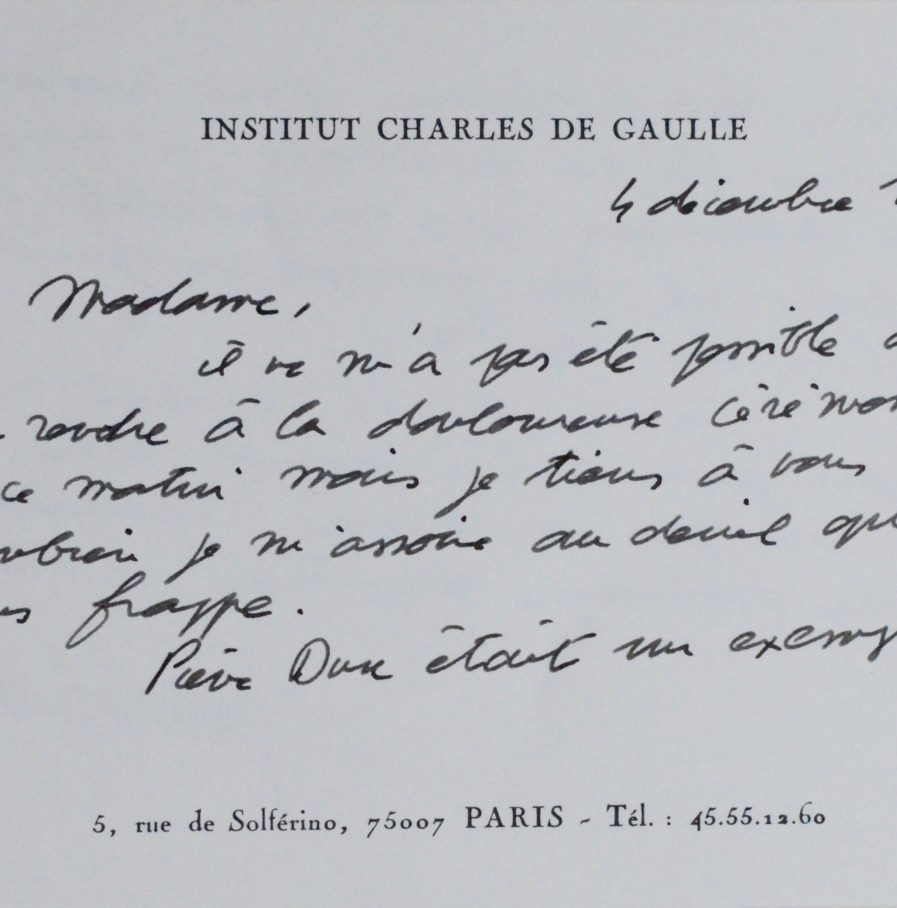 INSTITUT CHARLES DE GAULLE
4 décembre
Madame,
il ne m'a pas été possible
rendre à la douloureuse cérémon
ce matin mais je tiens à vous
mbien je m'associe au deuil qui
us frappe.
Pierre était un exemp
5, rue de Solférino, 75007 PARIS - Tél. : 45.55.12.60